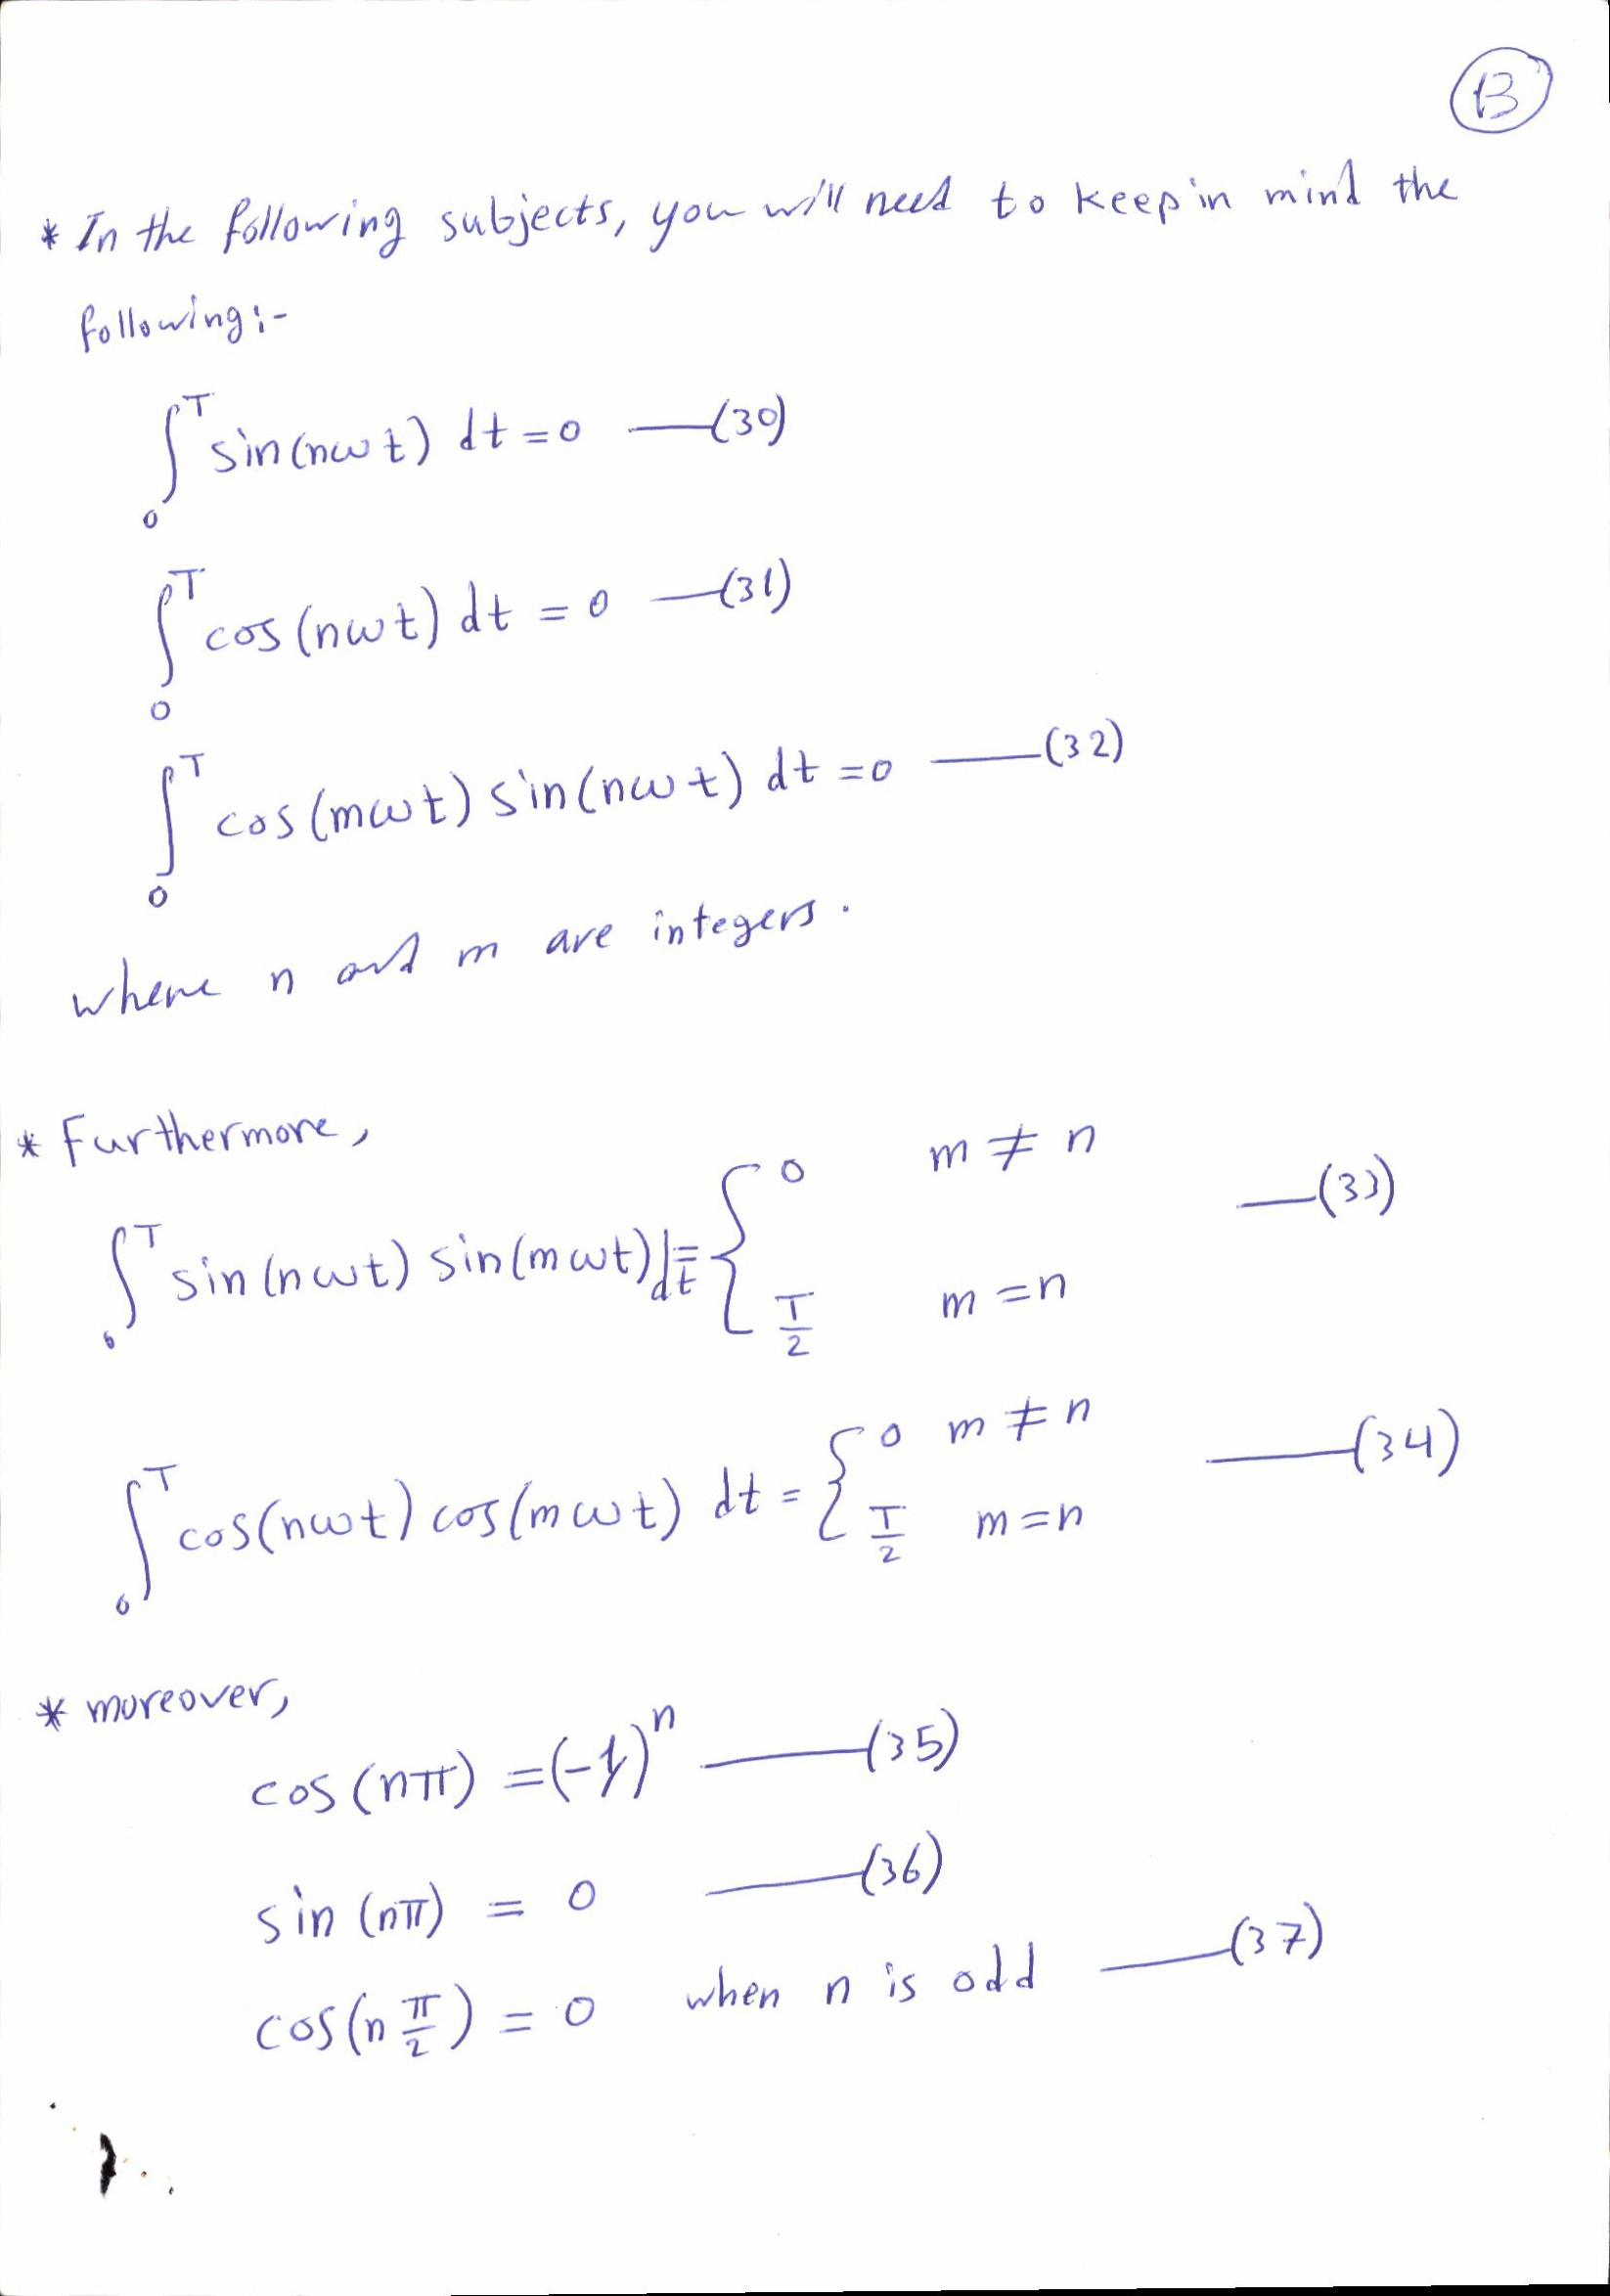 13
* In the following subjects, you will need to keep in mind the
following:-
∫₀ᵀ sin(nωt) dt = 0 —(30)
∫₀ᵀ cos(nωt) dt = 0 —(31)
∫₀ᵀ cos(mωt) sin(nωt) dt = 0 —(32)
where n and m are integers.
* Furthermore,
∫₀ᵀ sin(nωt) sin(mωt) dt = { 0 m ≠ n
T/2 m = n —(33)
∫₀ᵀ cos(nωt) cos(mωt) dt = { 0 m ≠ n
T/2 m = n —(34)
* moreover,
cos(nπ) = (-1)ⁿ —(35)
sin(nπ) = 0 —(36)
cos(n π/2) = 0 when n is odd —(37)